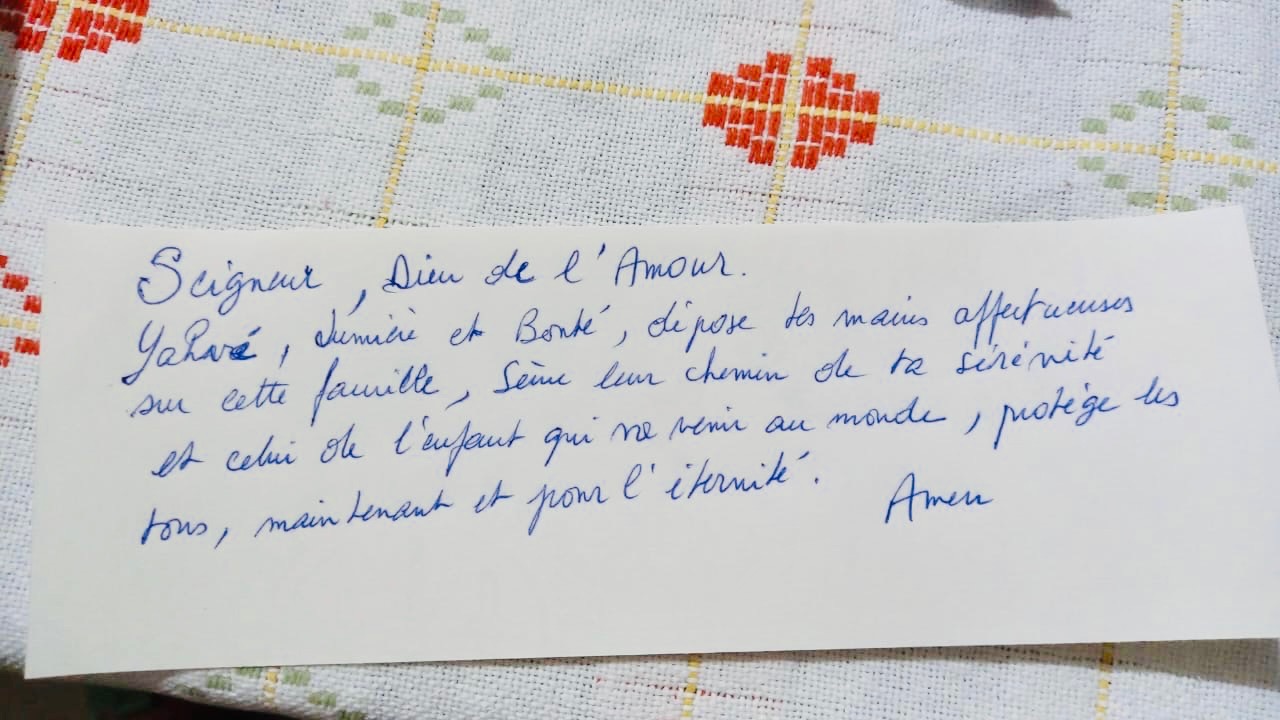 Seigneur, Dieu de l'Amour.
Yahvé, Lumière et Bonté, dépose tes mains affectueuses
sur cette famille, Sème leur chemin de ta sérénité
et celui de l'enfant qui va venir au monde, protège les
tous, maintenant et pour l'éternité.
Amen